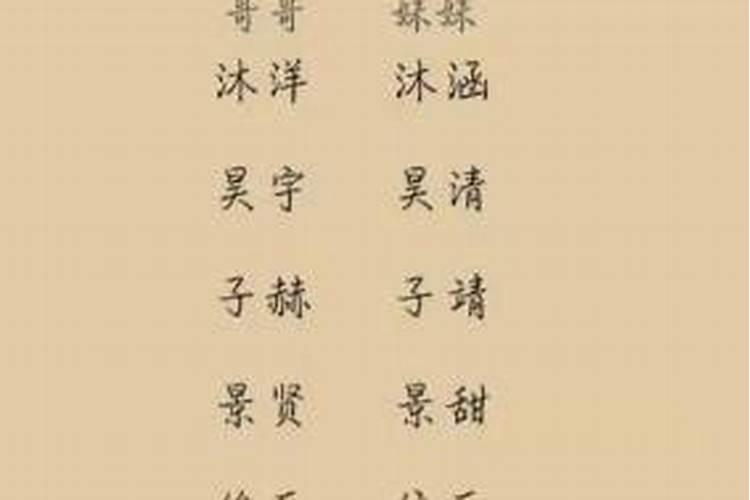 哥哥 妹妹
沐洋 沐涵
昊宇 昊清
子赫 子靖
景贤 景甜